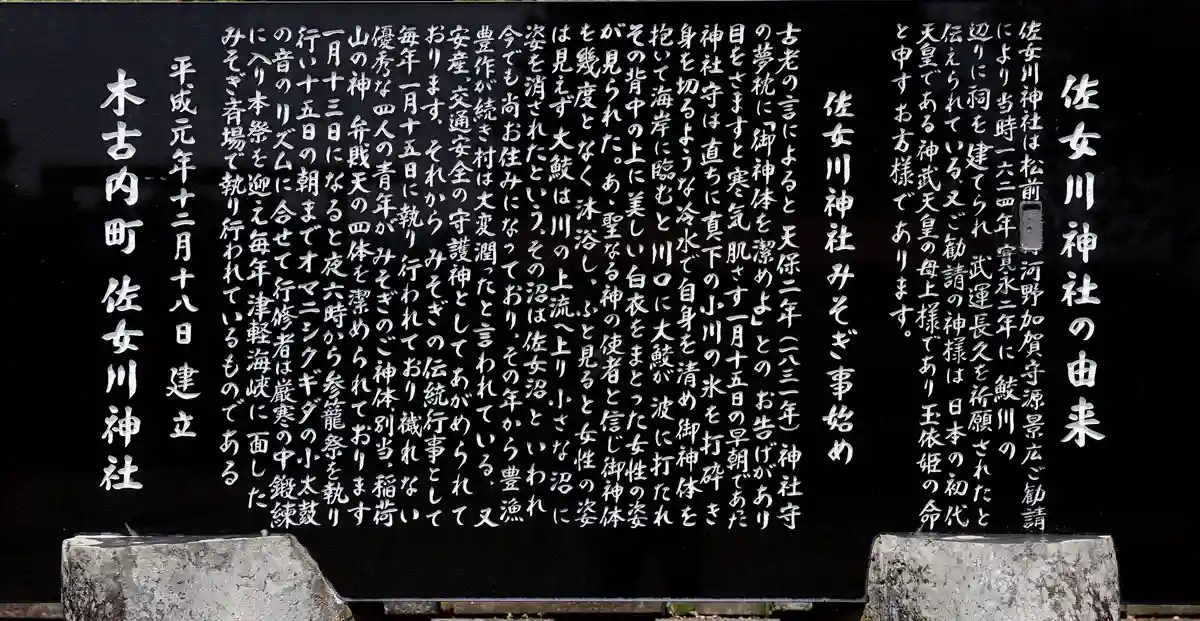 佐女川神社の由来
佐女川神社は松前 河野加賀守源景広ご勧請
により当時一六二四年寛永二年に 鮫川の
辺りに祠を建てられ 武運長久を祈願されたと
伝えられている 又ご勧請の神様は 日本の初代
天皇である神武天皇の母上様であり玉依姫の命
と申すお方様であります。
佐女川神社みそぎ事始め
古老の言によると天保二年(一八三一年)神社守
の夢枕に「御神体を潔めよ」とのお告げがあり
目をさますと寒気肌さす一月十五日の早朝であった
神社守は直ちに真下の小川の氷を打砕き
身を切るような冷水で自身を清め御神体を
抱いて海岸に臨むと川口に大鮫が波に打たれ
その背中の上に美しい白衣をまとった女性の姿
が見られた。あゝ聖なる神の使者と信じ御神体
を幾度となく沐浴し、ふと見ると女性の姿
は見えず 大鮫は川の上流へ上り小さな沼に
姿を消されたという。その沼は佐女沼といわれ
今でも尚お住みになっており、その年から豊漁
豊作が続き村は大変潤ったと言われている。又
安産、交通安全の守護神としてあがめられて
おります。それから みそぎの伝統行事として
毎年一月十五日に執り行われており 穢れない
優秀な四人の青年がみそぎのご神体別当、稲荷
山の神 弁財天の四体を潔められております
一月十三日になると夜六時から参籠祭を執り
行い十五日の朝までオマニシクギダの小太鼓
の音のリズムに合せて行修者は厳寒の中鍛練
に入り本祭を迎え毎年津軽海峡に面した
みそぎ斉場で執り行われているものである
平成元年十二月十八日 建立
木古内町 佐女川神社